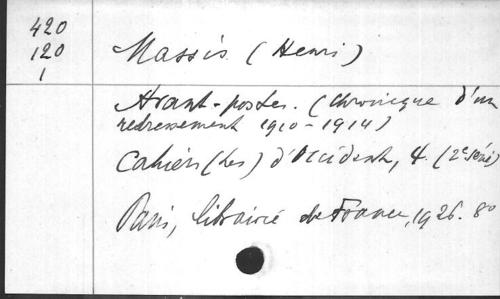 420
120
1
Massis (Henri)
Avant-postes. (Chronique d'un
redressement 1910-1914)
Cahiers (Les) d'Occident, 4. (2e série)
Paris, librairie de France, 1926. 8o